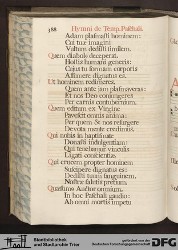 388 Hymni de Temp. Paschali.
Adam plasmasti hominem:
Cui tuæ imagini
Vultum dedisti similem.
Quem diabolus deceperat,
Hostis humani generis:
Cujus tu formam corporis
Assumere dignatus es.
Ut hominem redimeres,
Quem ante jam plasmaveras:
Et nos Deo conjungeres
Per carnis contubernium.
Quem editum ex Virgine
Pavescit omnis anima:
Per quem & nos resurgere
Devota mente credimus.
Qui nobis in baptismate
Donasti indulgentiam:
Qui tenebamur vinculis
Ligati conscientiæ.
Qui crucem propter hominem
Suscipere dignatus es:
Dedisti tuum sanguinem,
Nostræ salutis pretium.
Quæsumus Auctor omnium,
In hoc Paschali gaudio:
Ab omni mortis impetu
DFG